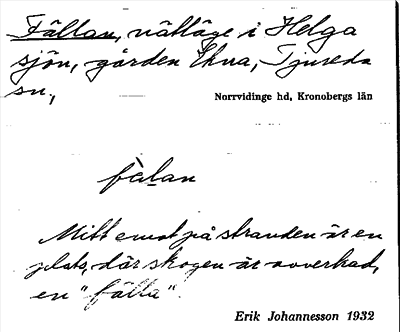 Fällan, nätläge i Helga
sjön, gården Ekna, Tjureda
sn,
Norrvidinge hd, Kronobergs län
fälan
Mitt emot på stranden är en
plats, där skogen är averkad,
en "fälla".
Erik Johannesson 1932